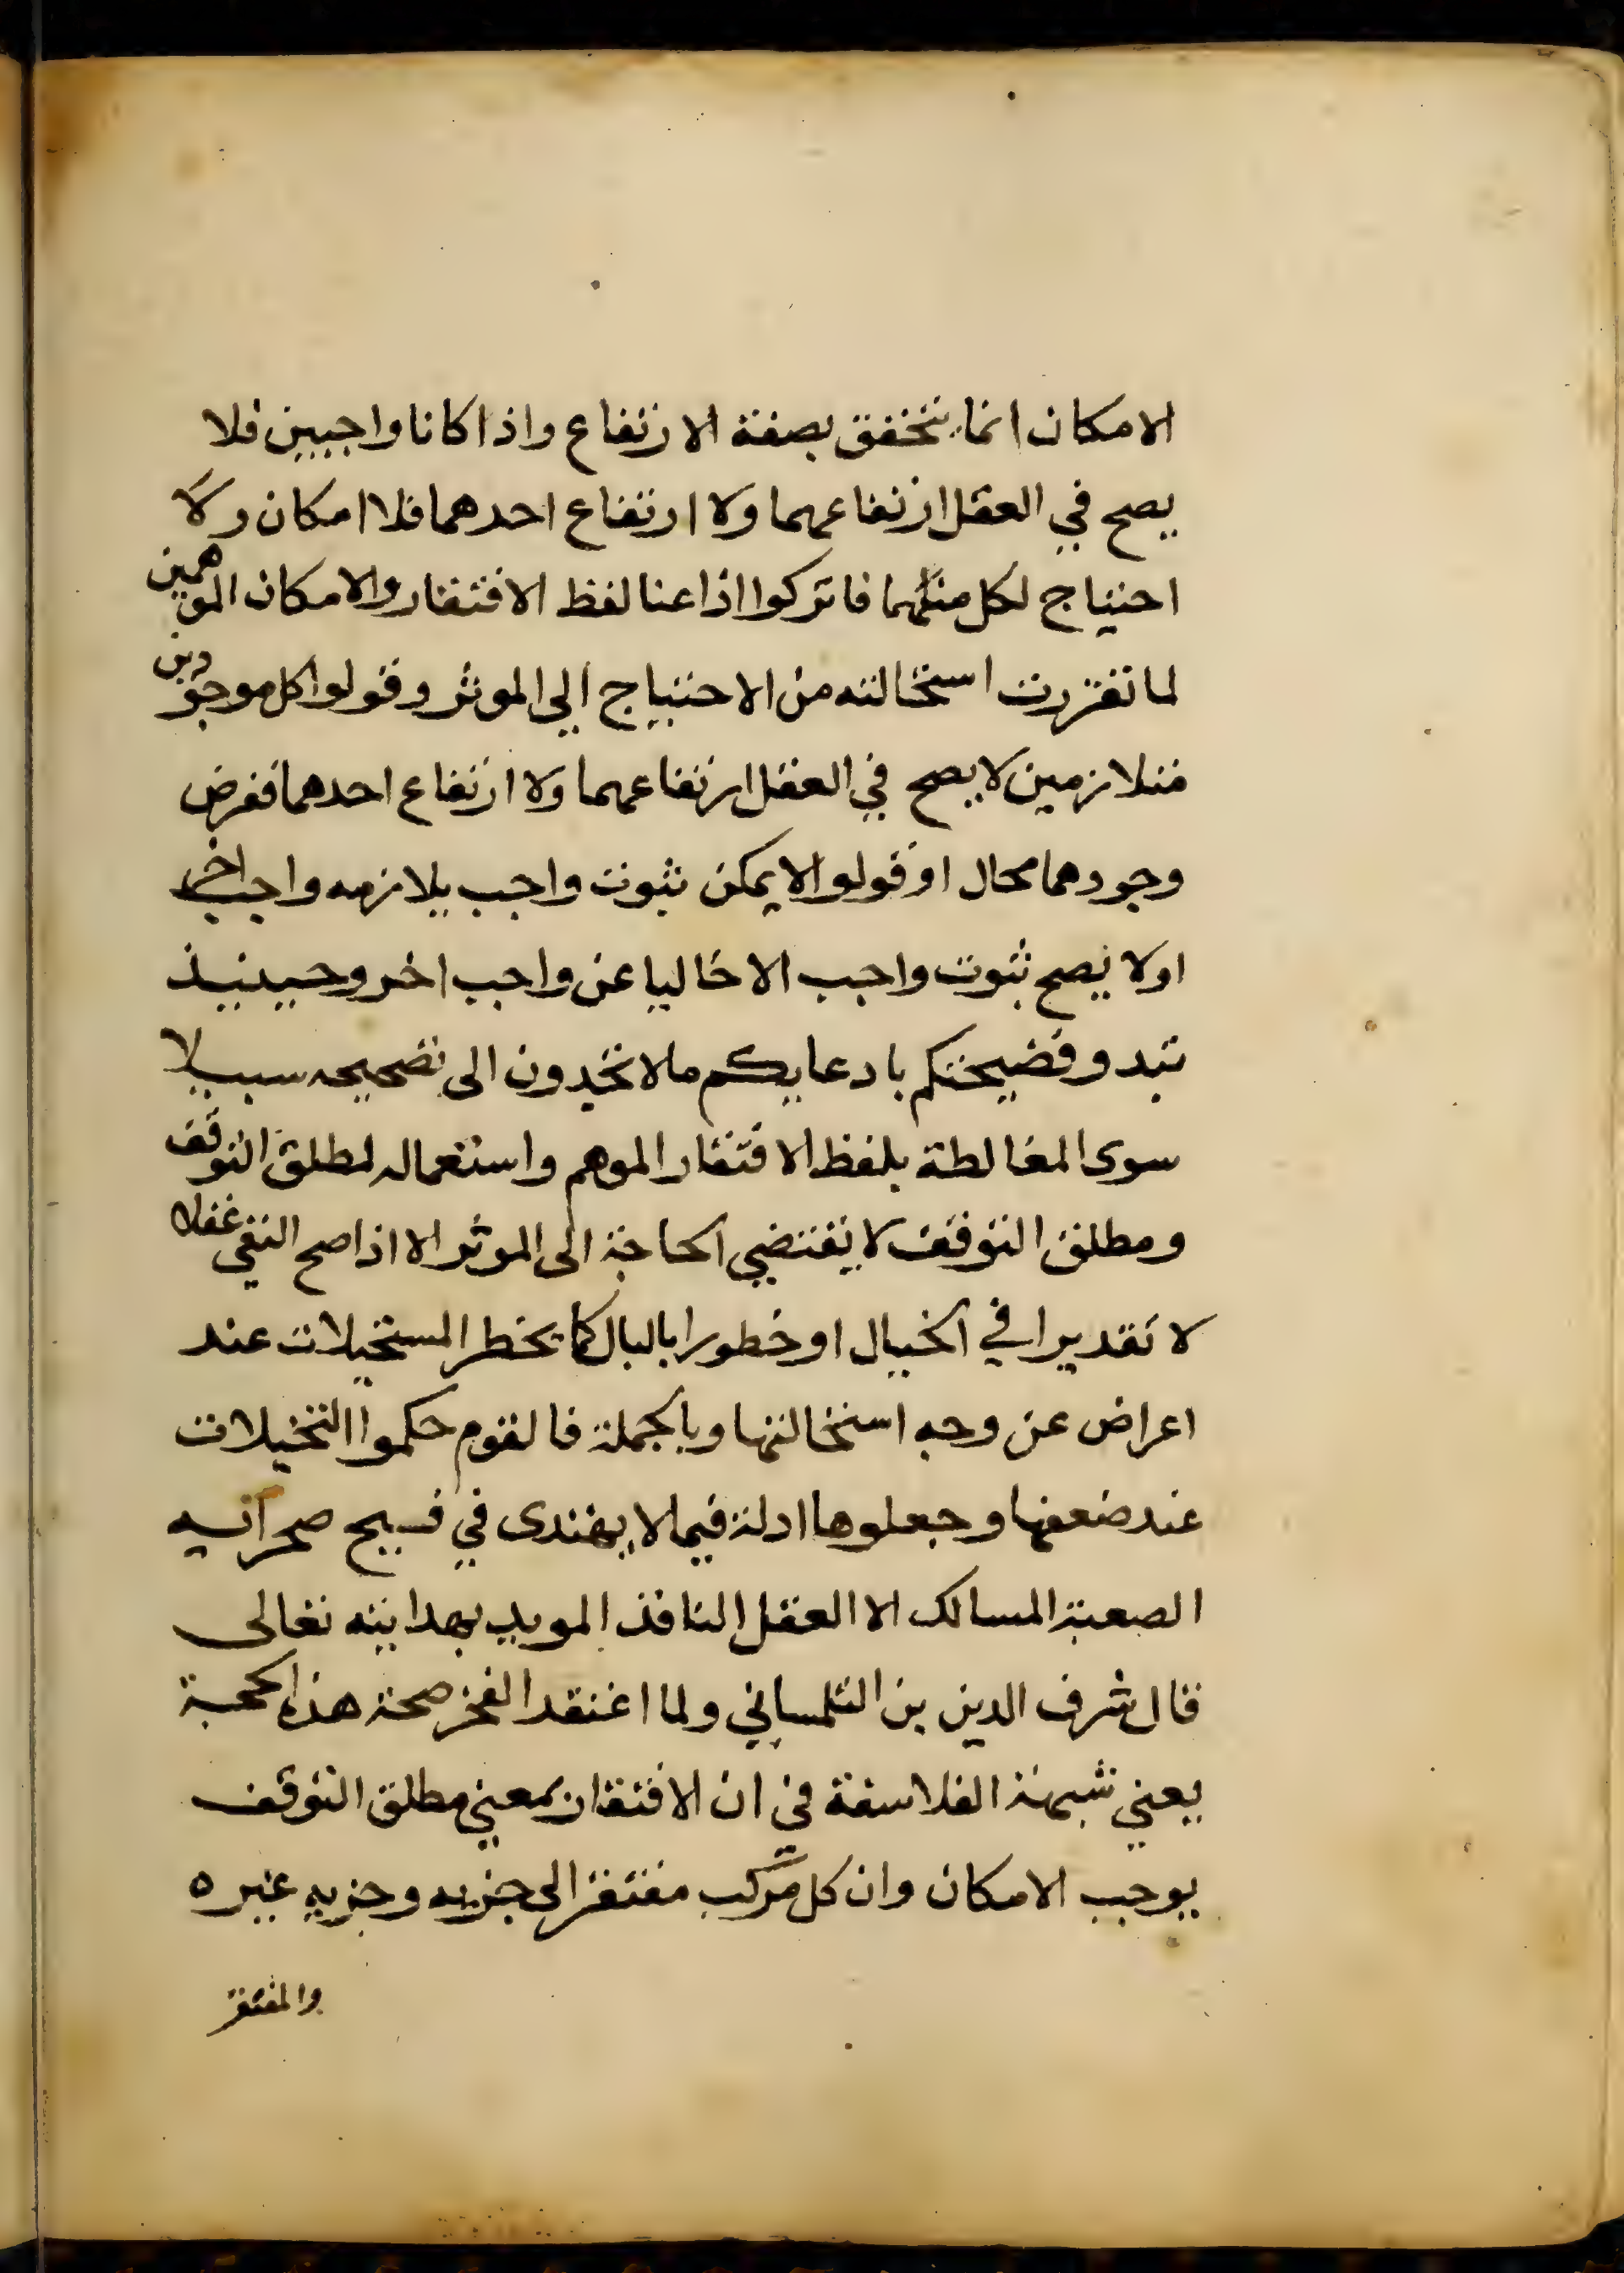 الامكان انما يتحقق بصفة الارتفاع واذا كانا واجبين فلا
يصح في العقل ارتفاعهما ولا ارتفاع احدهما فلا امكان ولا
احتياج لكل منهما فاتركوا اذا عنا لفظ الافتقار والامكان الموهمين
لما تقررت استحالته من الاحتياج الي الموثر وقولوا كل موجودين
متلازمين لا يصح في العقل ارتفاعهما ولا ارتفاع احدهما ففرض
وجودهما محال او قولوا لا يمكن ثبوت واجب يلازمه واجب اخر
او لا يصح ثبوت واجب الا خاليا عن واجب اخر وحينيذ
تبدو فضيحتكم بادعايكم ما لا تجدون الى تصحيحه سبيلا
سوى المغالطة بلفظ الافتقار الموهم واستعماله لمطلق التوقف
ومطلق التوقف لا يقتضي الحاجة الى الموثر الا اذا صح النفي عقلا
لا تقديرا في الخيال او خطورا بالبال كما تخطر المستحيلات عند
اعراض عن وجه استحالتها وبالجملة فالقوم حكموا التخيلات
عند ضعفها وجعلوها ادلة فيما لا يهتدى في فسيح صحرائيه
الصعبة المسالك الا العقل النافذ المويد بهدايته تعالى
قال شرف الدين بن التلمساني ولما اعتقد الفخر صحة هذه الحجة
يعني شبهة الفلاسفة في ان الافتقار بمعني مطلق التوقف
يوجب الامكان وان كل مركب مفتقر الى جزيه وجزيه غيره
والمفتقر